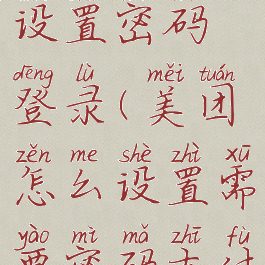 设置密码
dēng lù měi tuán
登录(美团
zěn me shè zhì xū
怎么设置需
yào mì mǎ zhī fù
要密码支付